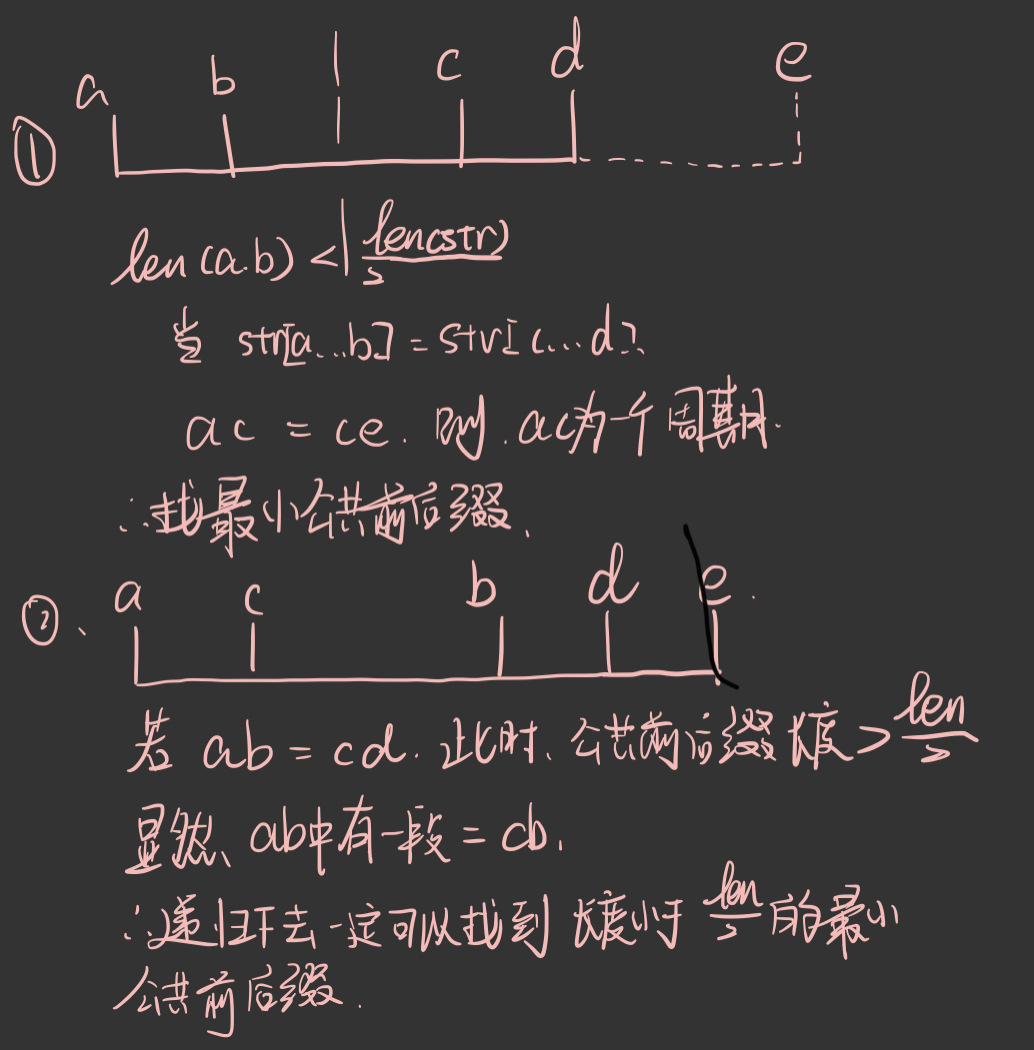 a b c d e
①
len(a.b) < len(str)/2
当 str[a...b] = str[c...d].
ac = ce. 则. ac为一个周期.
∴找最小公共前后缀.
a c b d e.
②、
若 ab = cd. 此时、公共前后缀长度 > len/2
显然、ab中有一段 = cb.
∴递归下去一定可以找到 长度小于 len/2 的最小
公共前后缀.